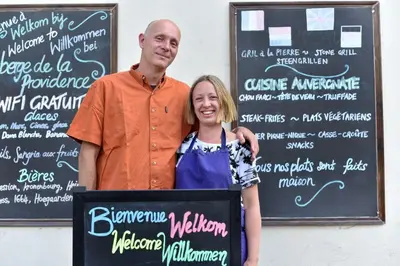 Bienvenue
Welkom by
Welcome to
Willkommen
bei
berge de la
Providence
WIFI GRATUIT
glaces
Dame Blanche, Banana
Sangria
Bières
Kronenbourg
1664, Hoegaarden
VENUE à
GRILL à la PIERRE ~ STONE GRILL
STEENGRILLEN
CUISINE AUVERGNATE
CHOU FARCI ~ TÊTE DE VEAU ~ TRUFFADE
STEAK-FRITES ~ PLATS VÉGÉTARIENS
CASSE-CROÛTE
SNACKS
Tous nos plats sont faits
maison
Bienvenue Welkom
Welcome Willkommen